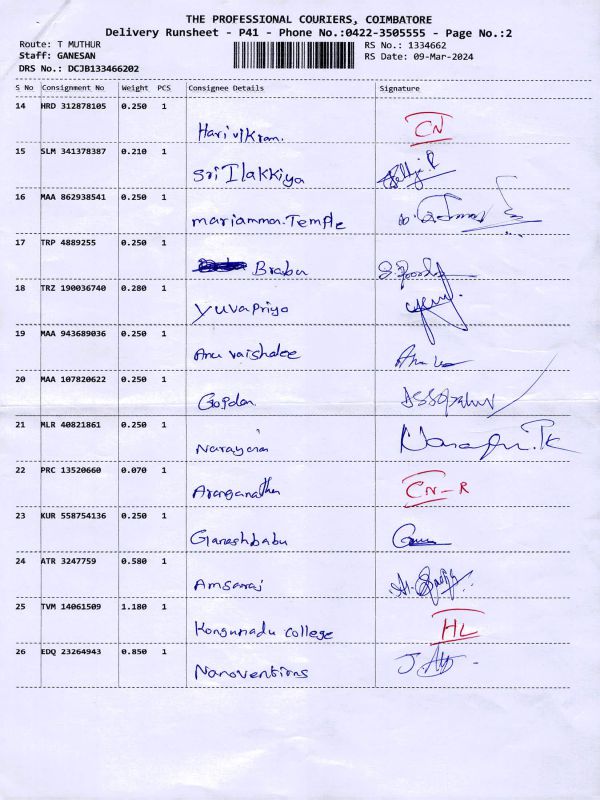 THE PROFESSIONAL COURIERS, COIMBATORE
Delivery Runsheet - P41 - Phone No.:0422-3505555 - Page No.:2
Route: T MUTHUR RS No.: 1334662
Staff: GANESAN RS Date: 09-Mar-2024
DRS No.: DCJB133466202
S No Consignment No Weight PCS Consignee Details Signature
14 HRD 312878105 0.250 1
Harivikram. CN
15 SLM 341378387 0.210 1
Sri Ilakkiya
16 MAA 862938541 0.250 1
mariamman.Temple
17 TRP 4889255 0.250 1
Brabu
18 TRZ 190036740 0.280 1
Yuvapriya
19 MAA 943689036 0.250 1
Anu vaishalee
20 MAA 107820622 0.250 1
Gopdan
21 MLR 40821861 0.250 1
Narayana
22 PRC 13520660 0.070 1
Aranganathan CN-R
23 KUR 558754136 0.250 1
Ganeshbabu
24 ATR 3247759 0.580 1
Amsaraj
25 TVM 14061509 1.180 1
Kongunadu college HL
26 EDQ 23264943 0.850 1
Nanoventions